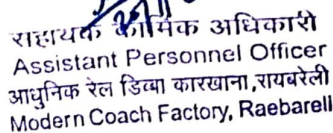 सहायक कार्मिक अधिकारी
Assistant Personnel Officer
आधुनिक रेल डिब्बा कारखाना,रायबरेली
Modern Coach Factory, Raebareli